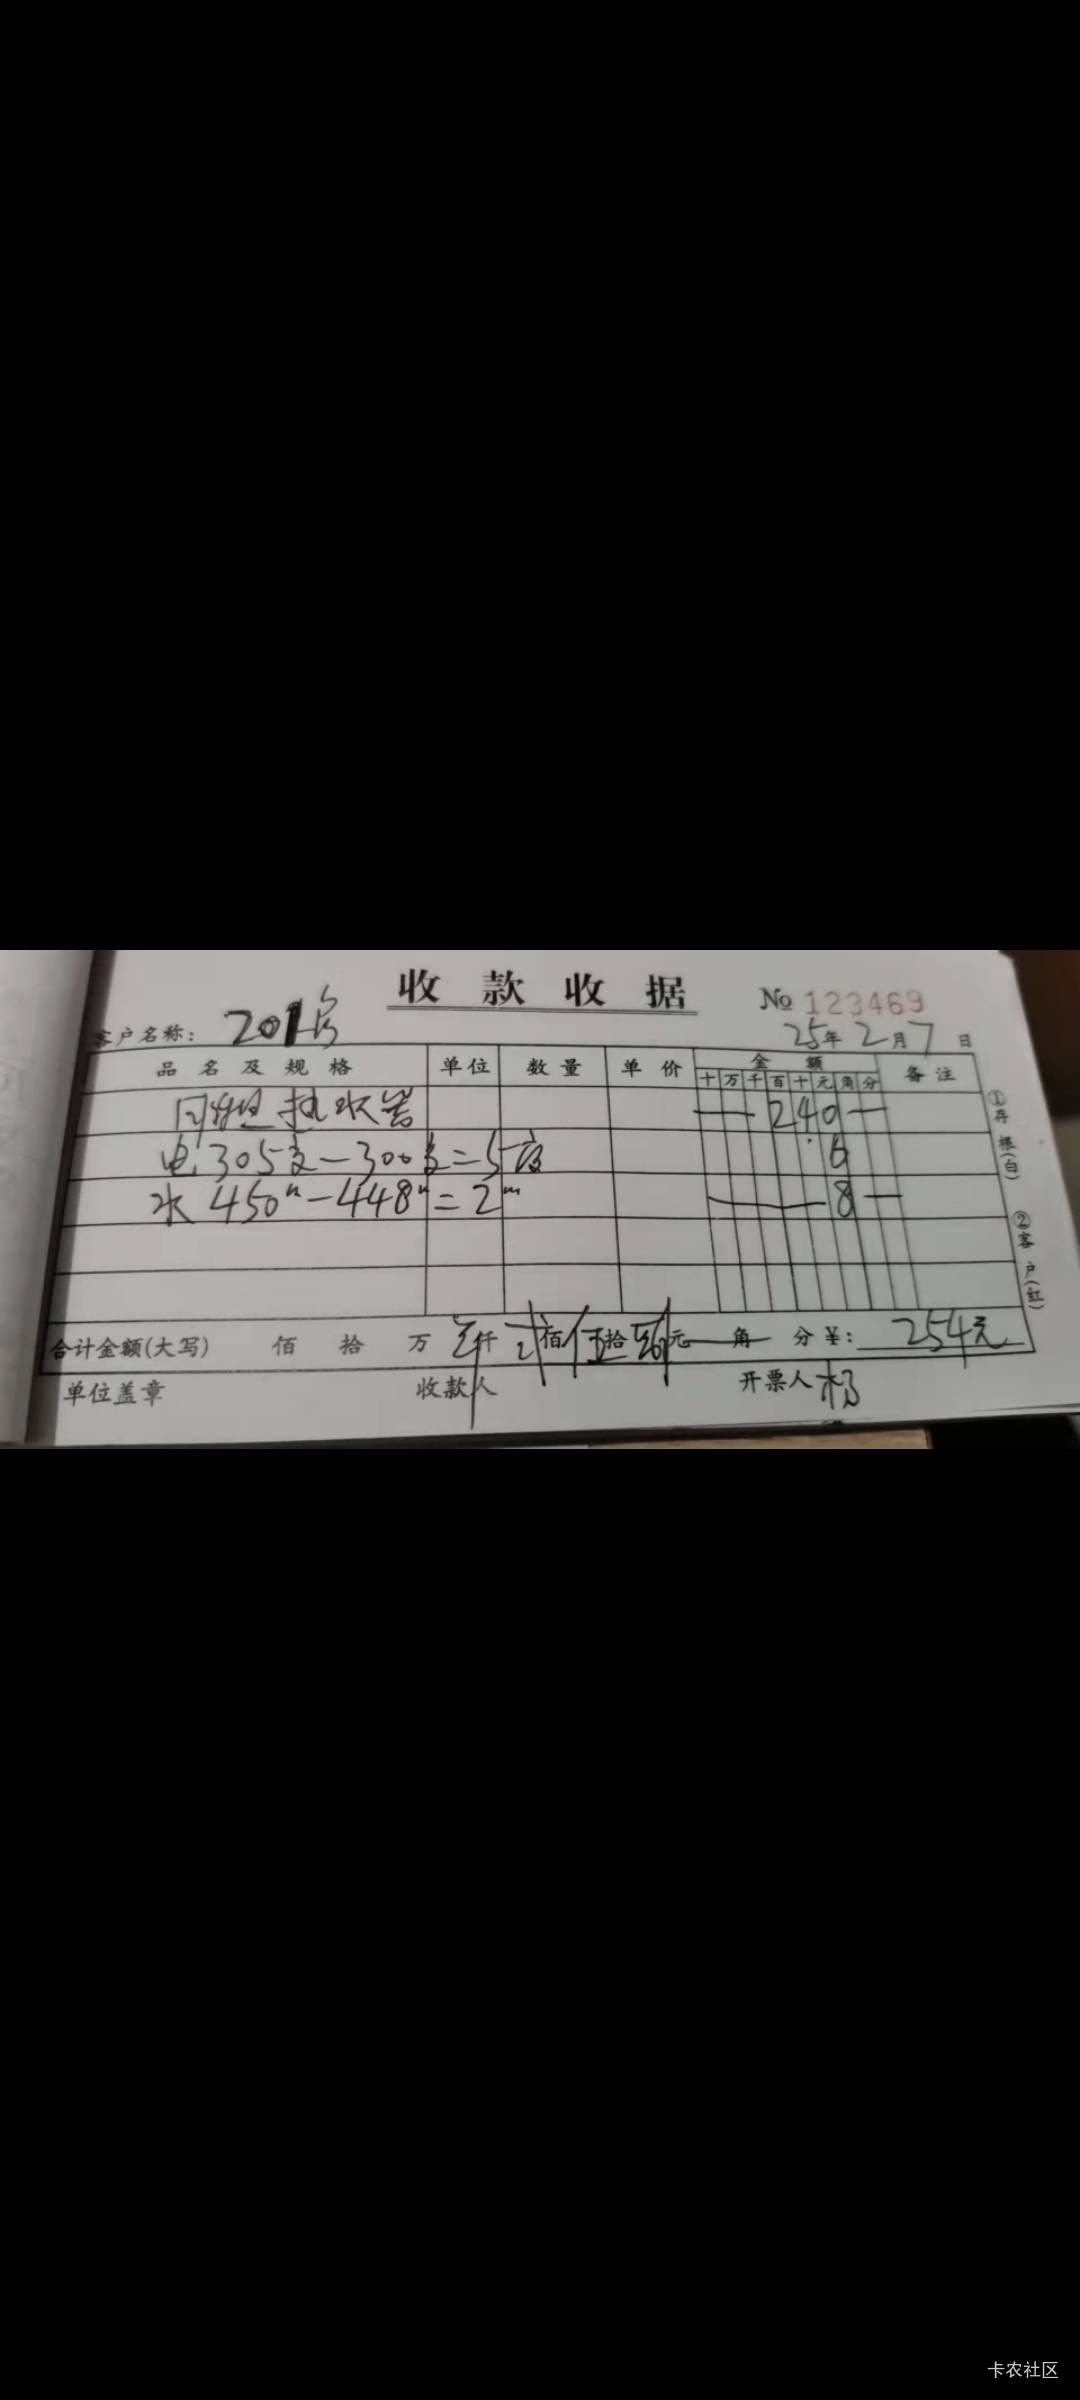 收款收据 № 123469
客户名称： 201房 25年2月7日
品名及规格 单位 数量 单价 金额 备注
十 万 千 百 十 元 角 分
热水器 240
电 305度-300度=5度 6
水 450m-448m=2m 8
合计金额(大写) 佰 拾 万 仟 佰 伍拾 元 角 分 ¥： 254元
单位盖章 收款人 开票人 杨
①存根(白)
②客户(红)
卡农社区